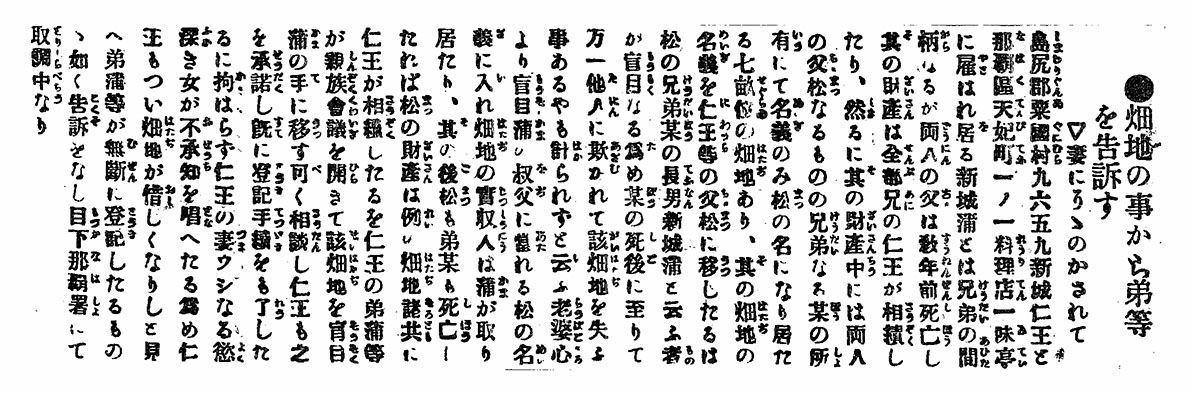 ●畑地の事から弟等
を告訴す
▽妻にそゝのかされて
島尻郡粟國村九六五九新城仁王と
那覇區天妃町一ノ一料理店一味亭
に雇はれ居る新城蒲とは兄弟の間
柄なるが両人の父は数年前死亡し
其の財産は全部兄の仁王が相續し
たり、然るに其の財産中には両人
の父松なるものの兄弟なる某の所
有にて名義のみ松の名になり居た
る七畝位の畑地あり、其の畑地の
名義を仁王等の父松に移したるは
松の兄弟某の長男新城蒲と云ふ者
が盲目なる爲め某の死後に至りて
万一他人に欺かれて該畑地を失ふ
事あるやも計られずと云ふ老婆心
より盲目蒲の叔父に當れる松の名
義に入れ畑地の實収人は蒲が取り
居たり、其の後松も弟某も死亡し
たれば松の財産は例の畑地諸共に
仁王が相續したるを仁王の弟蒲等
が親族會議を開きて該畑地を盲目
蒲の手に移す可く相談し仁王も之
を承諾し既に登記手續をも了した
るに拘はらず仁王の妻ウシなる慾
深き女が不承知を唱へたる爲め仁
王もつい畑地が惜しくなりしと見
へ弟蒲等が無斷に登記したるもの
ゝ如く告訴をなし目下那覇署にて
取調中なり